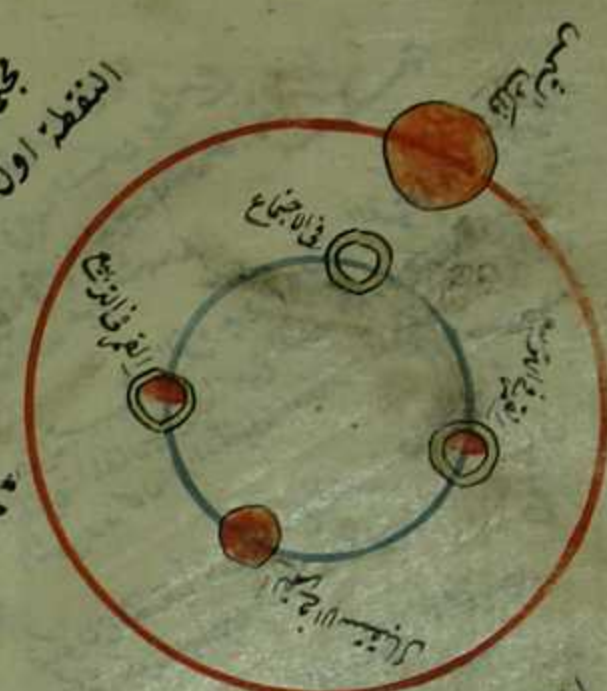 النقطة اول
فلك الشمس
فى الاجتماع
القمر فى التربيع
القمر فى التربيع
القمر فى الاستقبال